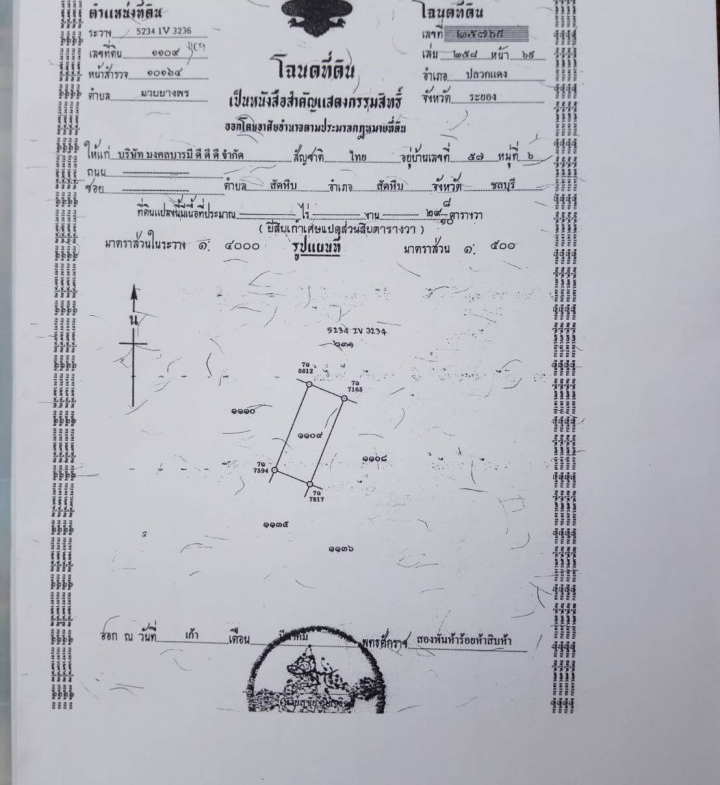 ตำแหน่งที่ดิน
ระวาง 5234 IV 3236
เลขที่ดิน ๑๑๐๙
หน้าสำรวจ ๑๐๑๖๔
ตำบล มาบยางพร
โฉนดที่ดิน
เลขที่ ๒๕๘๗๖๕
เล่ม ๒๕๘๘ หน้า ๖๕
อำเภอ ปลวกแดง
จังหวัด ระยอง
โฉนดที่ดิน
เป็นหนังสือสำคัญแสดงกรรมสิทธิ์
ออกโดยอาศัยอำนาจตามประมวลกฎหมายที่ดิน
ให้แก่ บริษัท มงคลบารมี ดี ดี ดี จำกัด สัญชาติ ไทย อยู่บ้านเลขที่ ๕๗ หมู่ที่ ๖
ถนน
ซอย ตำบล สัตหีบ อำเภอ สัตหีบ จังหวัด ชลบุรี
ที่ดินแปลงนี้มีเนื้อที่ประมาณ ไร่ งาน ๒๙ ๘/๑๐ ตารางวา
( ยี่สิบเก้าเศษแปดส่วนสิบตารางวา )
มาตราส่วนในระวาง ๑: ๔๐๐๐ รูปแผนที่ มาตราส่วน ๑: ๕๐๐
น
5234 IV 3234
7ด
6612
7ด
7165
๑๑๑๐
๑๑๐๙
๑๑๐๘
7ด
7594
7ด
7817
๑๑๓๕
๑๑๓๖
ออก ณ วันที่ เก้า เดือน พุทธศักราช สองพันห้าร้อยห้าสิบห้า